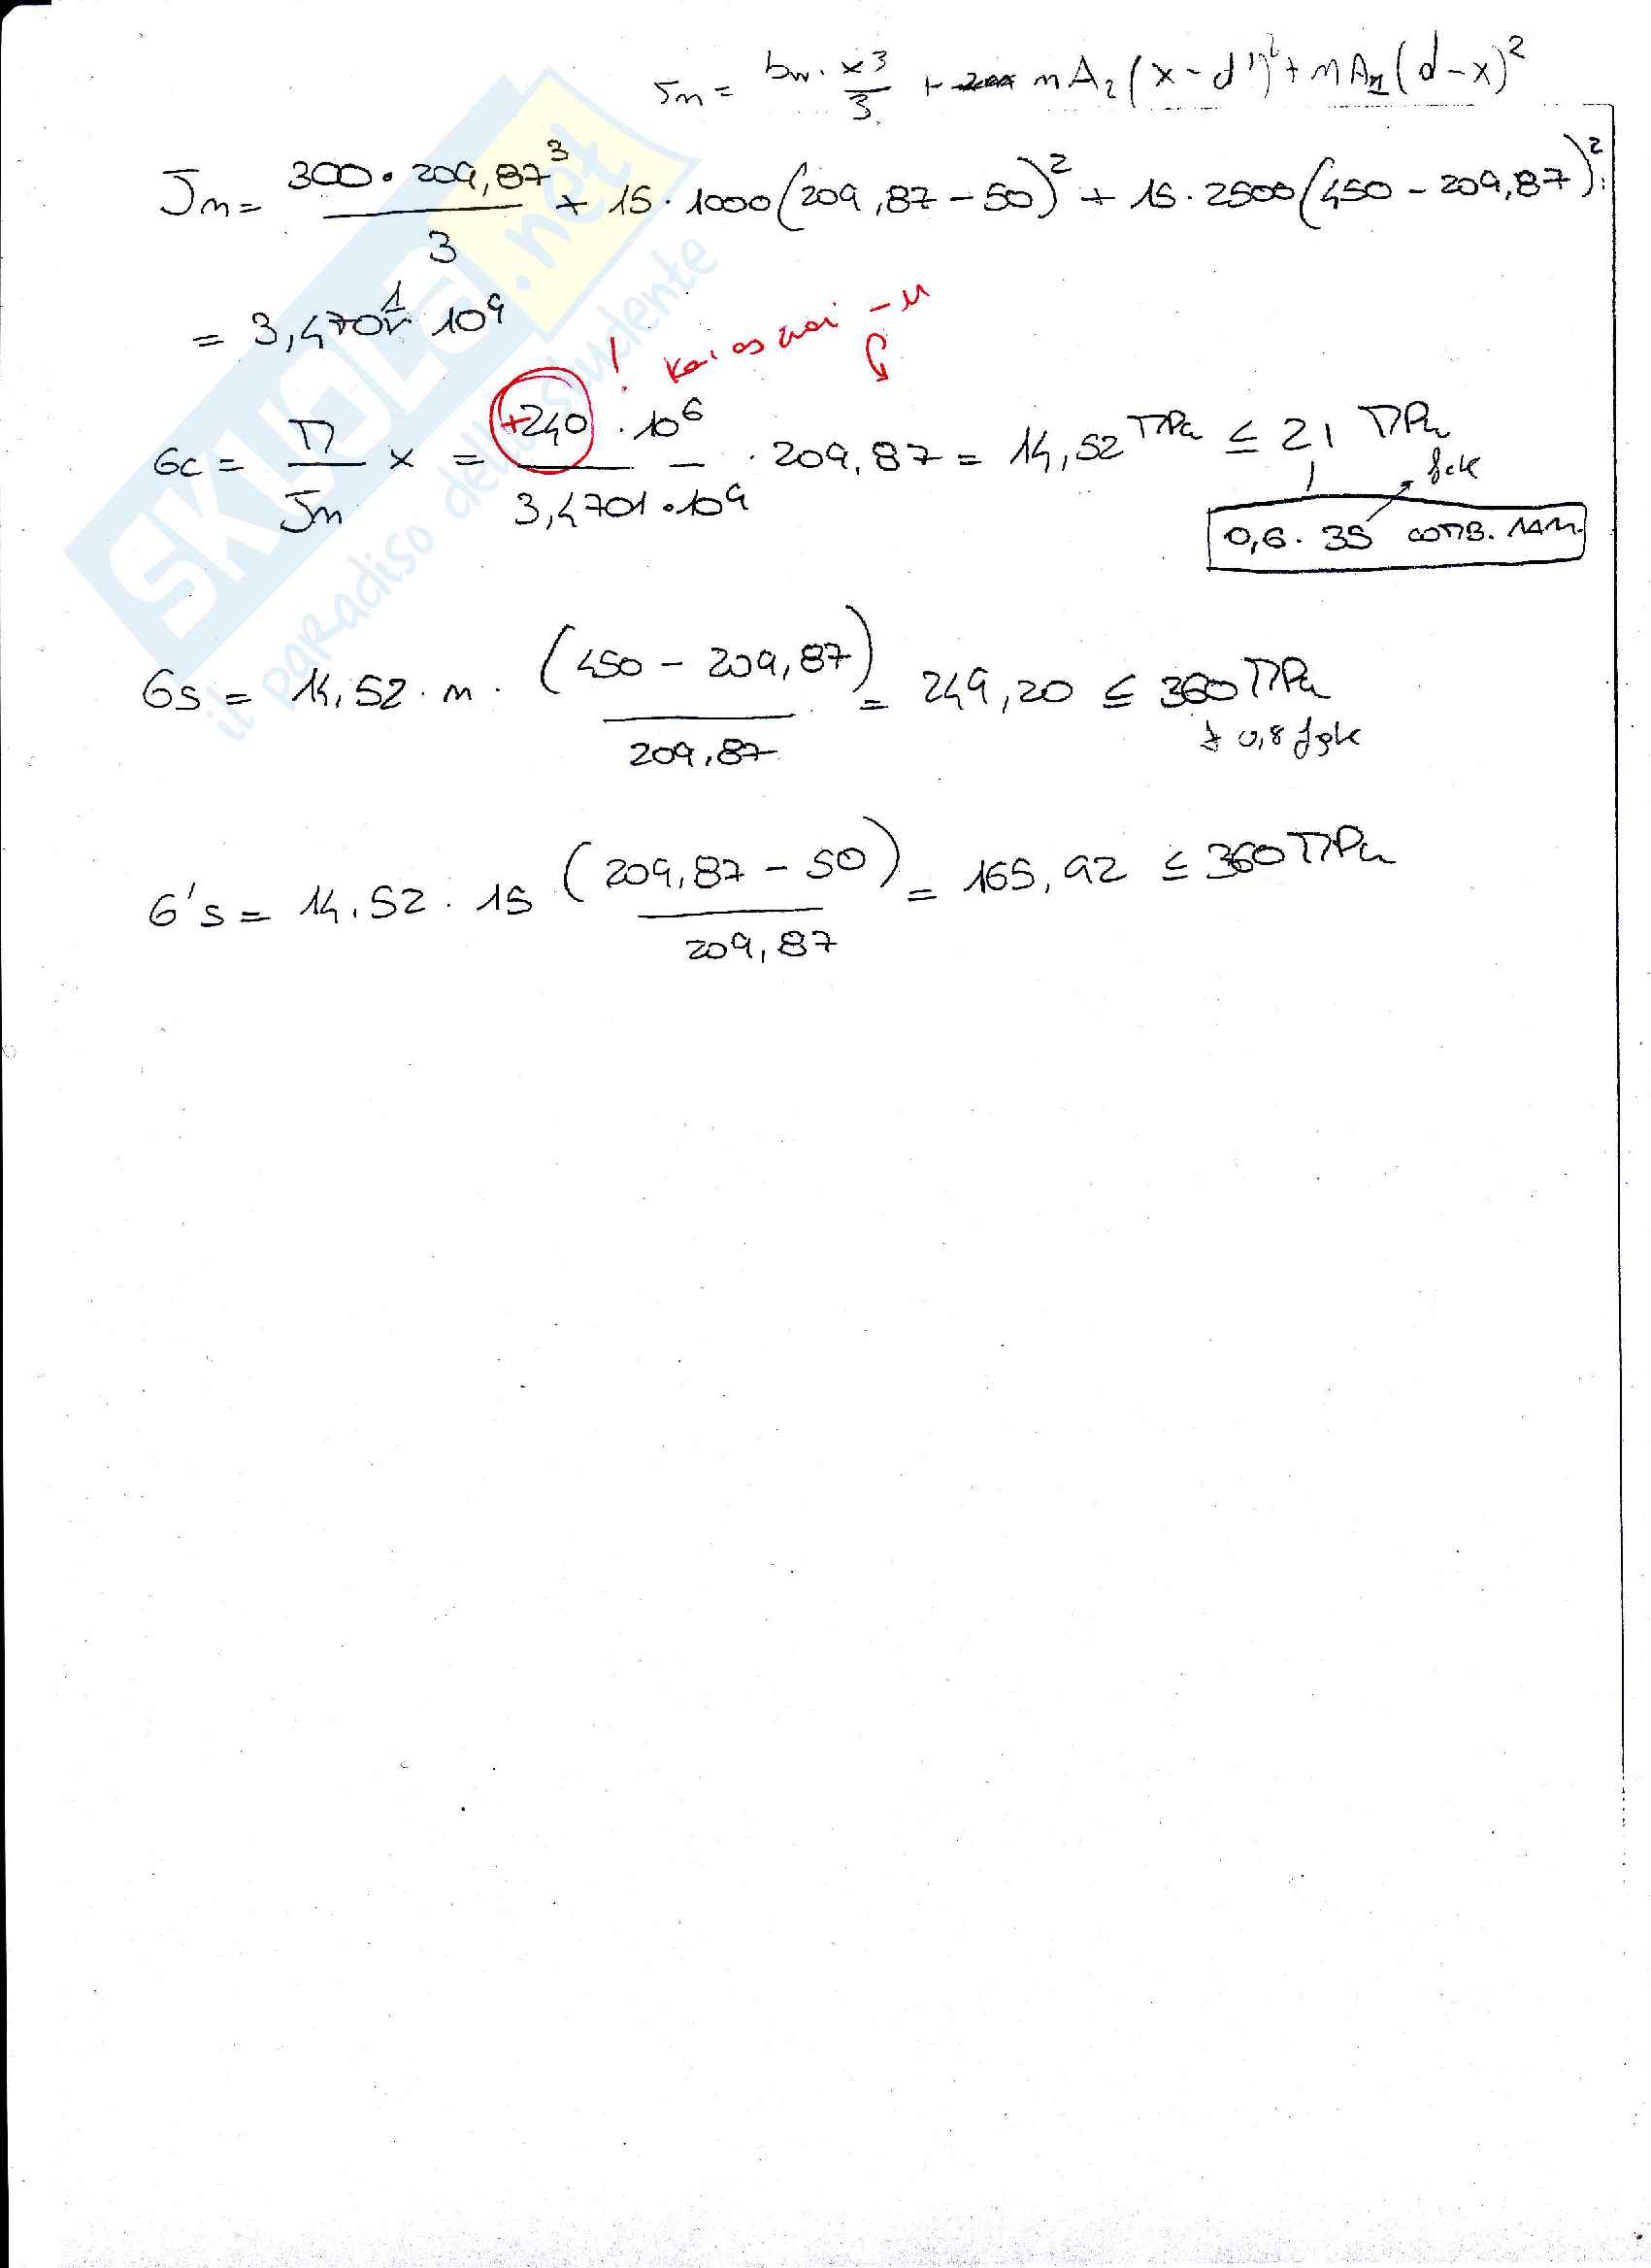 Jn = bw · x³/3 + nA₂(x - d')² + nA₁(d - x)²
Jn = 300 · 209,87³ / 3 + 15 · 1000(209,87 - 50)² + 15 · 2500(450 - 209,87)² =
= 3,4701 · 10⁹
! - M
σc = M / Jn x = +240 · 10⁶ / 3,4701 · 10⁹ · 209,87 = 14,52 MPa ≤ 21 MPa
fck
0,6 · 35 COMB. RAR.
σs = 14,52 · n · (450 - 209,87) / 209,87 = 249,20 ≤ 360 MPa
0,8 fyk
σ's = 14,52 · 15 (209,87 - 50) / 209,87 = 165,92 ≤ 360 MPa
SKUOLA.net
il paradiso dello studente